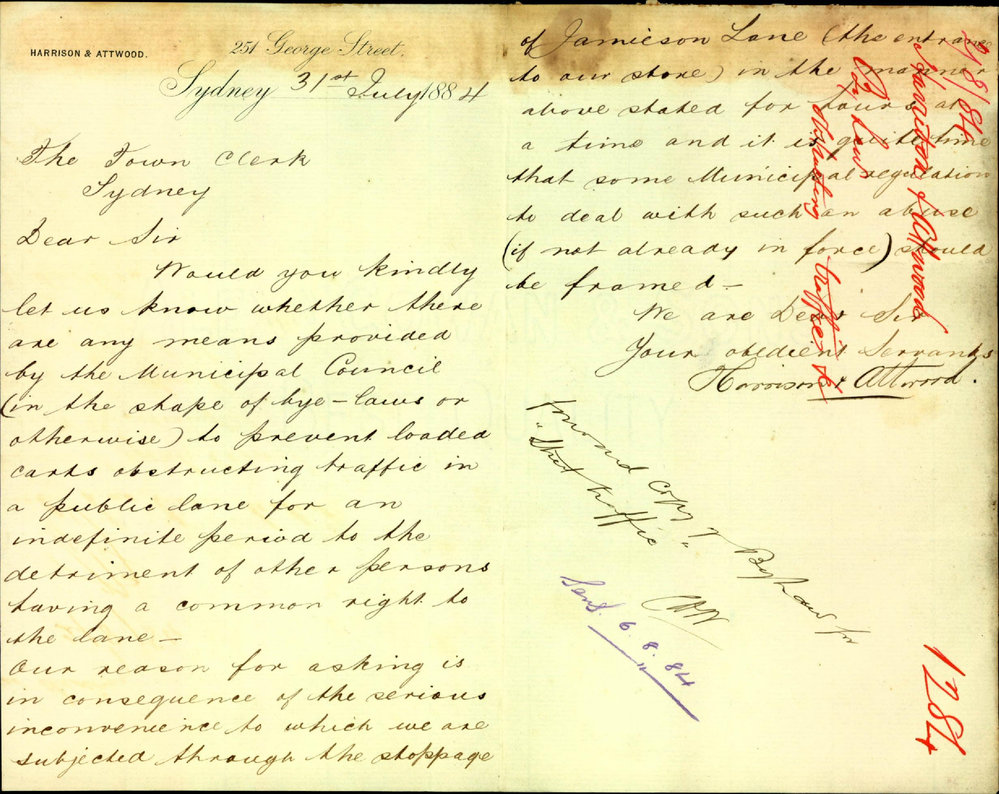 HARRISON & ATTWOOD.
251 George Street.
Sydney 31st July 1884
The Town Clerk
Sydney
Dear Sir
Would you kindly
let us know whether there
are any means provided
by the Municipal Council
(in the shape of bye-laws or
otherwise) to prevent loaded
carts obstructing traffic in
a public lane for an
indefinite period to the
detriment of other persons
having a common right to
the lane—
Our reason for asking is
in consequence of the serious
inconvenience to which we are
subjected through the stoppage
of Jamieson Lane (the entrance
to our store) in the manner
above stated for hours at
a time and it is quite time
that some Municipal regulation
to deal with such an abuse
(if not already in force) should
be framed—
We are Dear Sir
Your obedient Servants
Harrison & Attwood.
forward copy of Bye Law for
"Street traffic"
Sent. 6.8.84
/8/84
Harrison & Attwood
Carts
obstructing traffic &c
1284